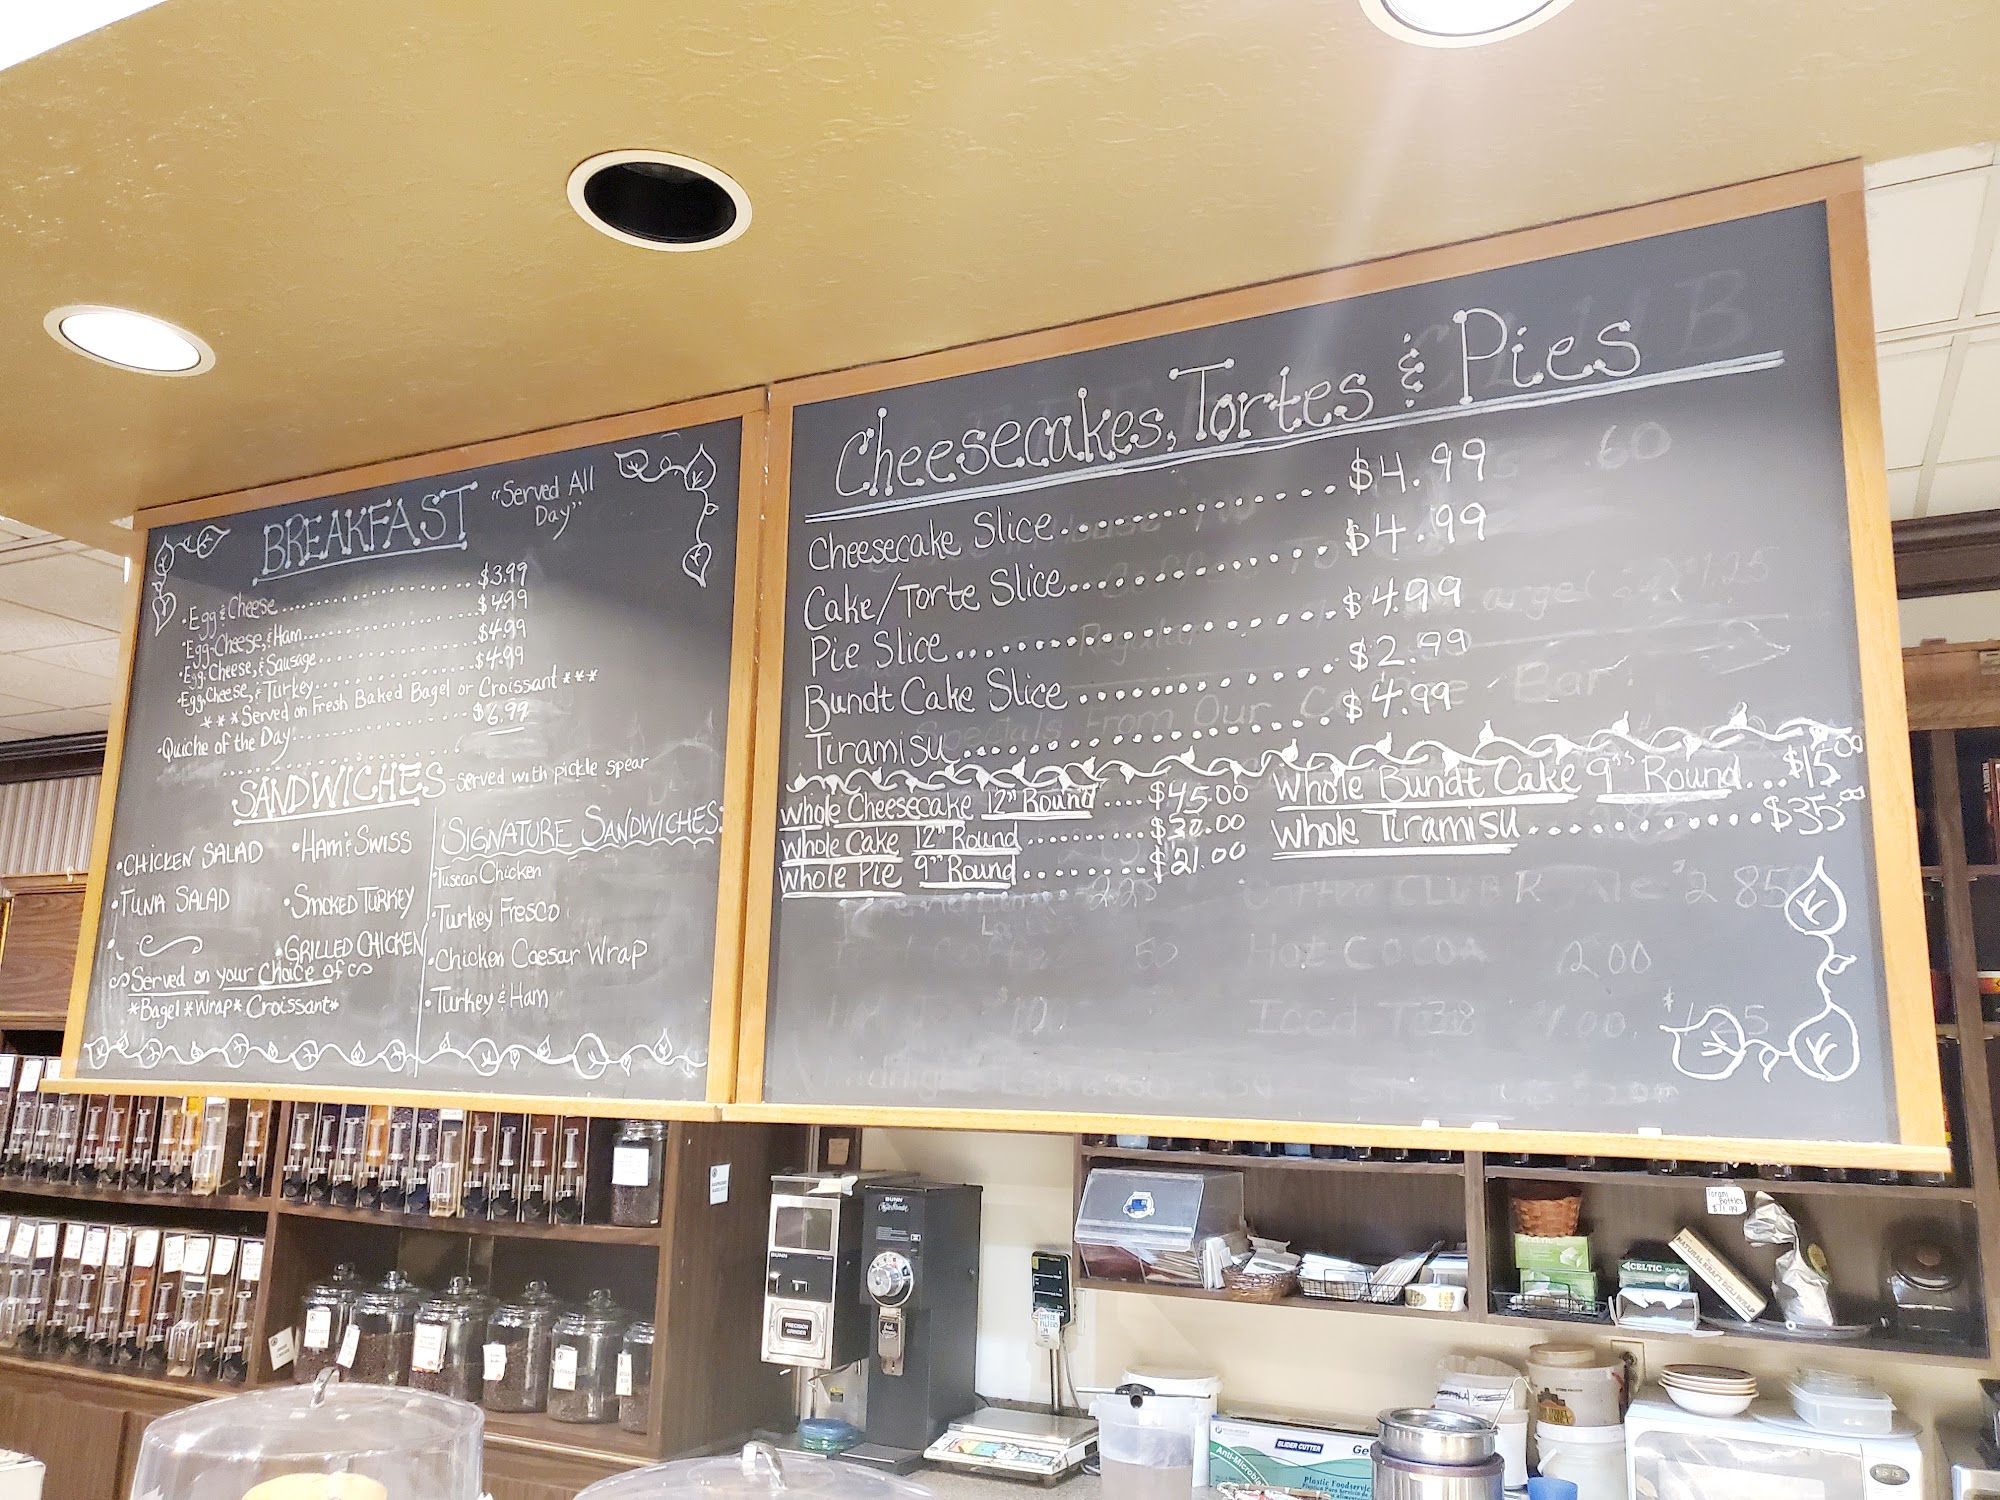 BREAKFAST "Served All Day"
• Egg & Cheese .................. $3.99
• Egg-Cheese, & Ham .................. $4.99
• Egg, Cheese, & Sausage .................. $4.99
• Egg, Cheese, & Turkey .................. $4.99
***Served on Fresh Baked Bagel or Croissant***
• Quiche of the Day .................. $6.99
SANDWICHES - served with pickle spear
• CHICKEN SALAD
• HAM & SWISS
• TUNA SALAD
• SMOKED TURKEY
• GRILLED CHICKEN
Served on your choice of
*Bagel *Wrap* Croissant*
SIGNATURE SANDWICHES:
• Tuscan Chicken
• Turkey Fresco
• Chicken Caesar Wrap
• Turkey & Ham
Cheesecakes, Tortes & Pies
Cheesecake Slice .................. $4.99
Cake/Torte Slice .................. $4.99
Pie Slice .................. $4.99
Bundt Cake Slice .................. $2.99
Tiramisu .................. $4.99
Whole Cheesecake 12" Round .... $45.00
Whole Cake 12" Round ........
Whole Pie 9" Round ........ $21.00
Whole Bundt Cake 9" Round ... $15.00
Whole Tiramisu ............ $35.00
Hot Cocoa 2.00
BUNN
BUNN
PRECISION GRINDER
Torani Bottles
$11.99
CELTIC
NATURAL KRAFT DELI WRAP
SLIDER CUTTER
Anti-Microbial